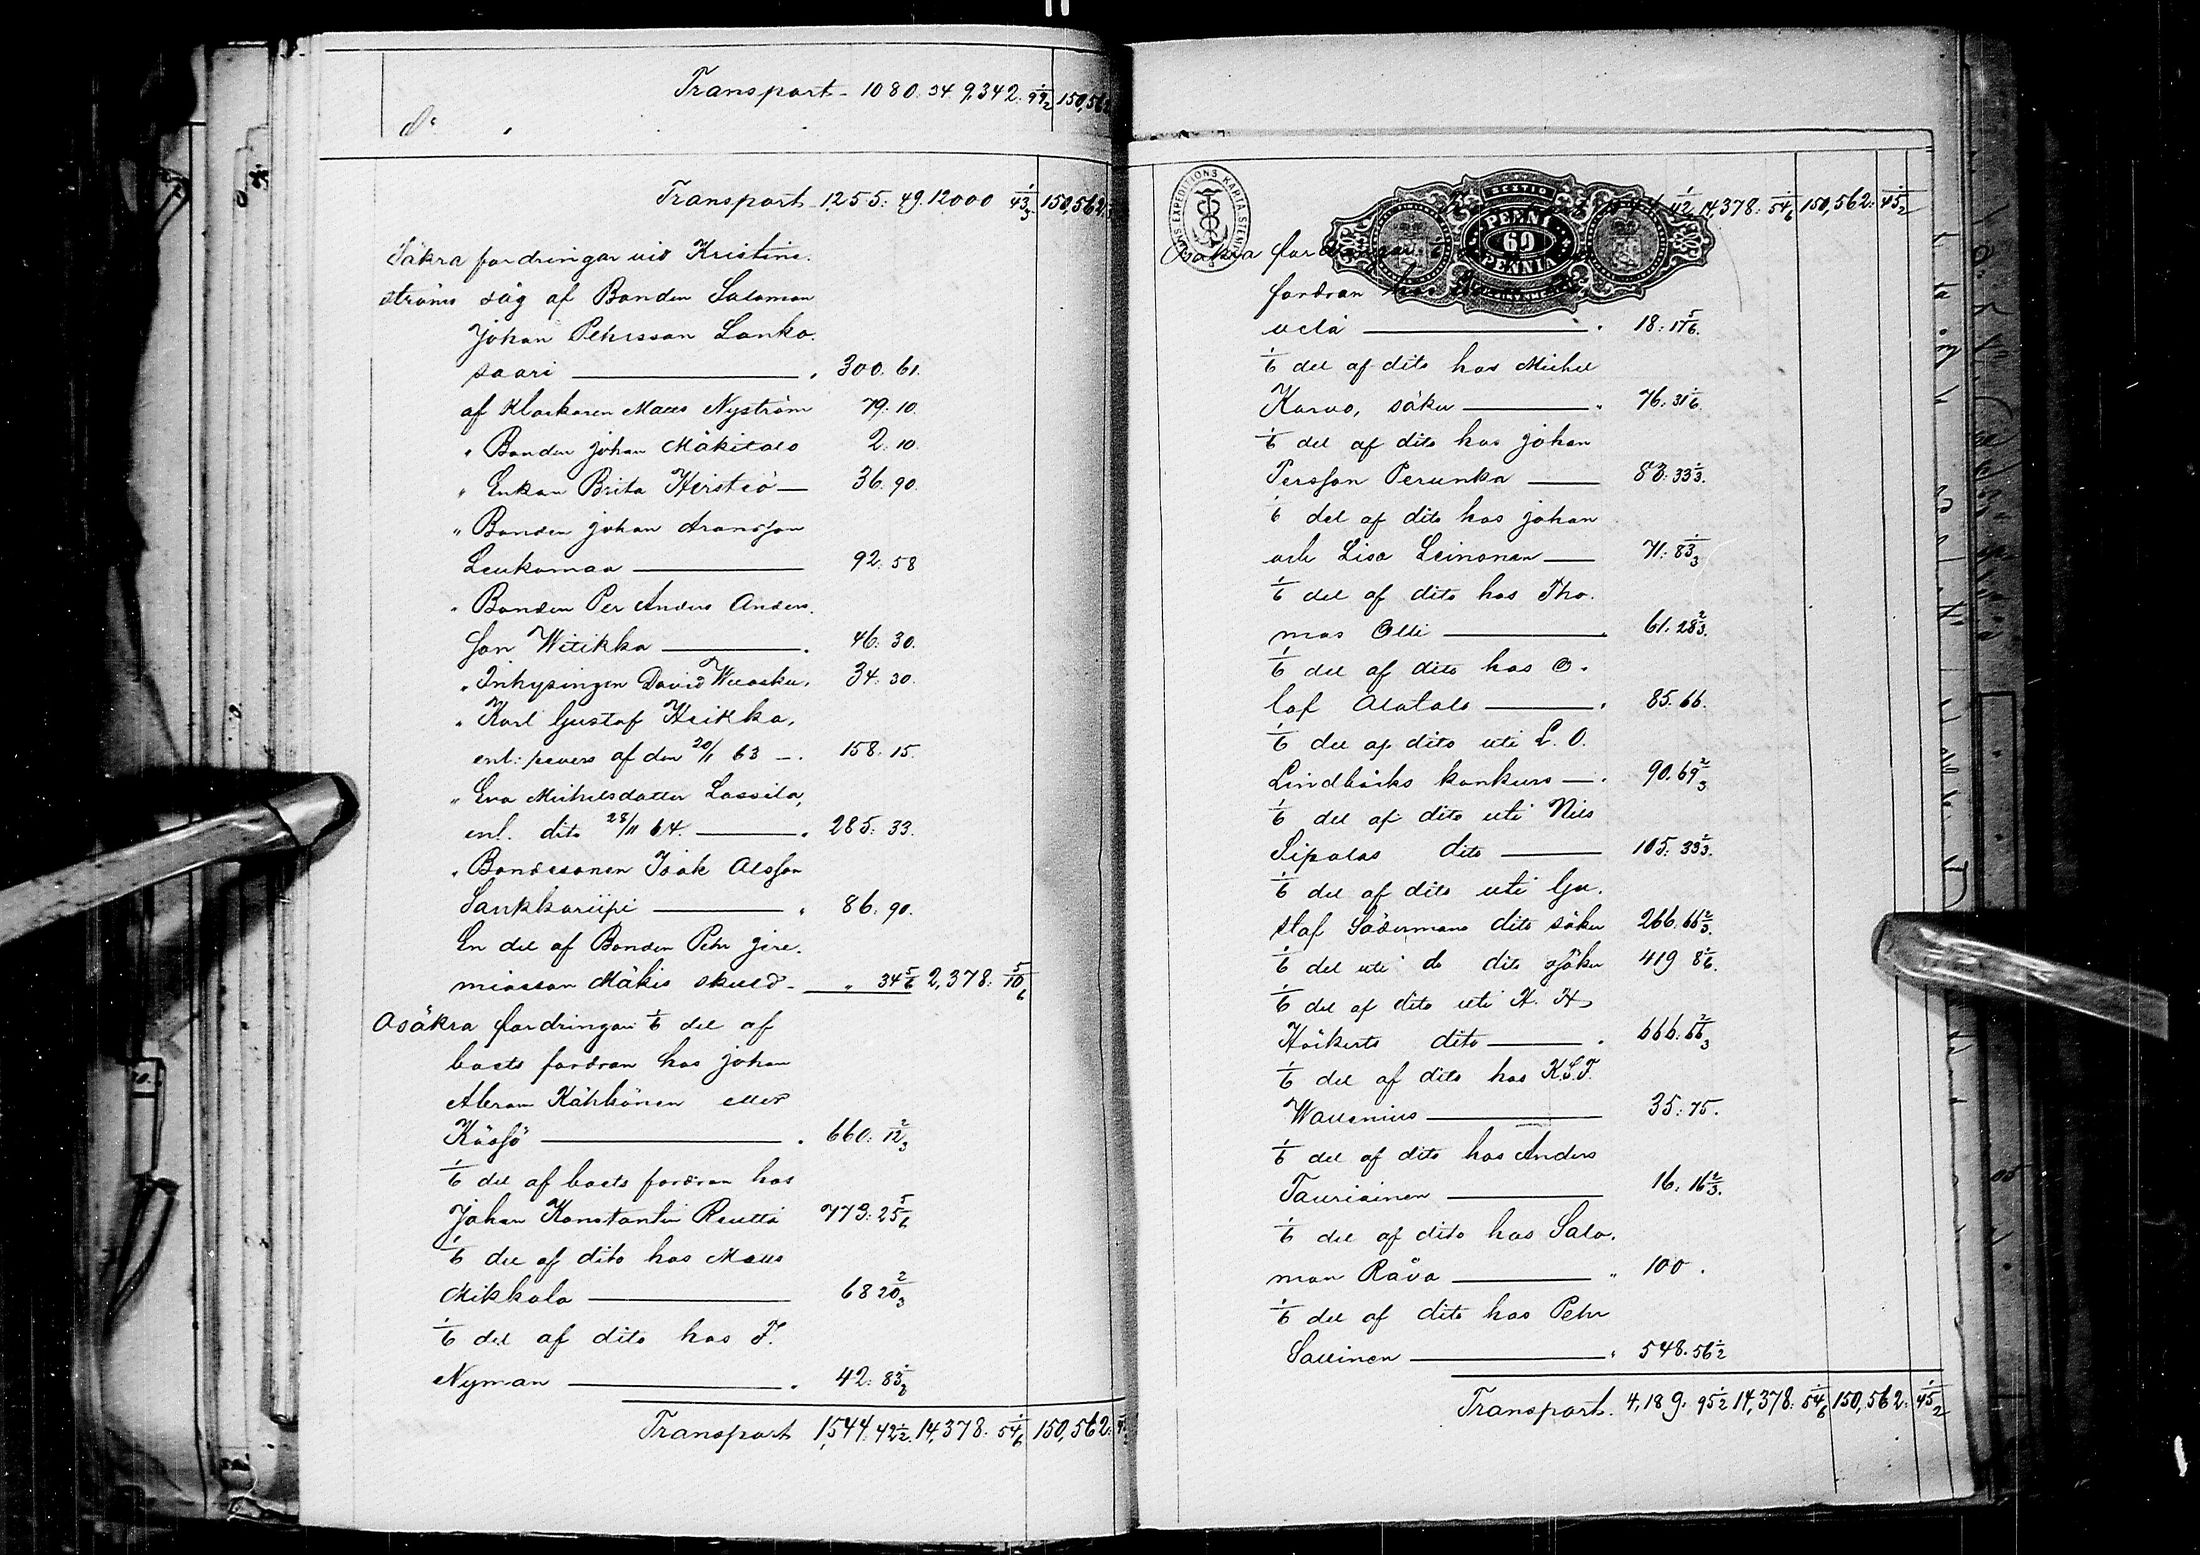 Transport 1080. 34 9,342. 99 1/2 150,56
d:o
Transport 1255. 49. 12000 43 1/3 150,562.
Säkra fordringar vid Kristine-
ströms såg af Bonden Salomon
Johan Pehrsson Lanko-
saari 300. 61.
af Klockaren Maus Nyström 79. 10.
" Bonden Johan Mäkitalo 2. 10.
" Enkan Brita Heistiö 36. 90.
" Bonden Johan Aronsson
Leukumaa 92. 58
" Bonden Per Anders Anders-
son Witikka 46. 30.
" Inhysingen David 34. 30.
" Karl Gustaf Heikka,
enl: revers af den 20/11 63 158. 15.
" Eva Michelsdotter Lassila,
enl. dito 28/11 64. 285. 33.
" Bondesonen Isak Olsson
Sankkariipi 86. 90.
En del af Bonden Pehr Jere-
miasson Mäkis skuld " 34 5/6 2,378. 10 5/6
Osäkra fordringar 1/6 del af
boets fordran hos Johan
Abram Kähkönen eller
Käsjö 660. 12 2/3
1/6 del af boets fordran hos
Johan Konstantin Rautio 773. 25 5/6
1/6 del af dito hos Maus
Mikkola 68 20 2/3
1/6 del af dito hos F.
Nyman 42. 83 1/3
Transport 1,544. 42 1/2. 14,378. 54 1/6 150,562.
SEXTIO
PENNI
60
PENNIÄ
42 1/2 14,378. 54 1/6 150,562. 45 1/2
Osäkra
fordran
uclä 18. 17 5/6.
1/6 del af dito hos Michel
Karvo, säker 76. 31 1/6.
1/6 del af dito hos Johan
Persson Perunka 83. 33 1/3.
1/6 del af dito hos Johan
och Lisa Leinonen 71. 83 1/3
1/6 del af dito hos Tho-
mas Olli 61. 28 2/3.
1/6 del af dito hos O-
lof Alatalo 85. 66.
1/6 del af dito uti L. O.
Lindbäcks konkurs 90. 69 2/3
1/6 del af dito uti Nils
Sipolas dito 105. 33 1/3.
1/6 del af dito uti Gu-
staf Södermans dito säker 266. 66 2/3.
1/6 del uti do dito osäker 419 8 1/6.
1/6 del af dito uti H. H.
Höckerts dito 666. 66 2/3
1/6 del af dito hos K.S.F.
Wallenius 35. 75.
1/6 del af dito hos Anders
Tauriainen 16. 16 2/3.
1/6 del af dito hos Salo-
mon Råva " 100.
1/6 del af dito hos Pehr
Sallinen 548. 56 1/2
Transport. 4,189. 95 1/2 14,378. 54 1/6 150,562. 45 1/2